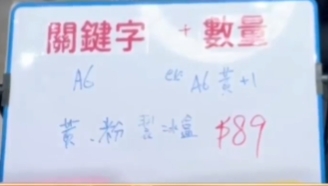 關鍵字 + 數量
A6 ex A6 黃+1
黃、粉 製冰盒 $89